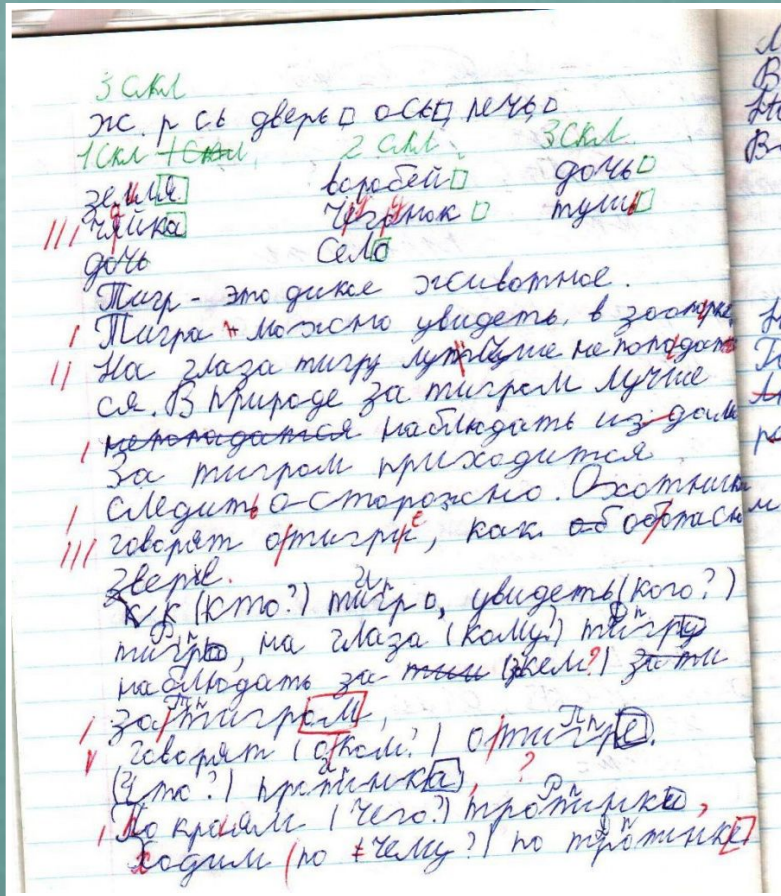 3 скл
ж. р сь дверь ось, печь,
1 скл 2 скл. 3 скл.
земля воробей дочь
чайка чегунок тушь
дочь село
Тигр - это дикое животное.
Тигра можно увидеть, в зоопрке
На глаза тигру лучше непопадат
ся. В природе за тигром лучше
непопадатся наблюдать из дали
За тигром приходится
следить о-сторожно. Охотники
говорят о тигре, как об опасном
звере.
И п
(кто?) тигр, увидеть (кого?)
Р п Д п
тигра, на глаза (кому?) тигру
наблюдать за (кем?) за ти
за тигром,
П п
говорят (о ком?) о тигре.
(что?) тропинка, ?
Р п
По краям (чего?) тропинки,
Д п
Ходим (по чему?) по тропинке